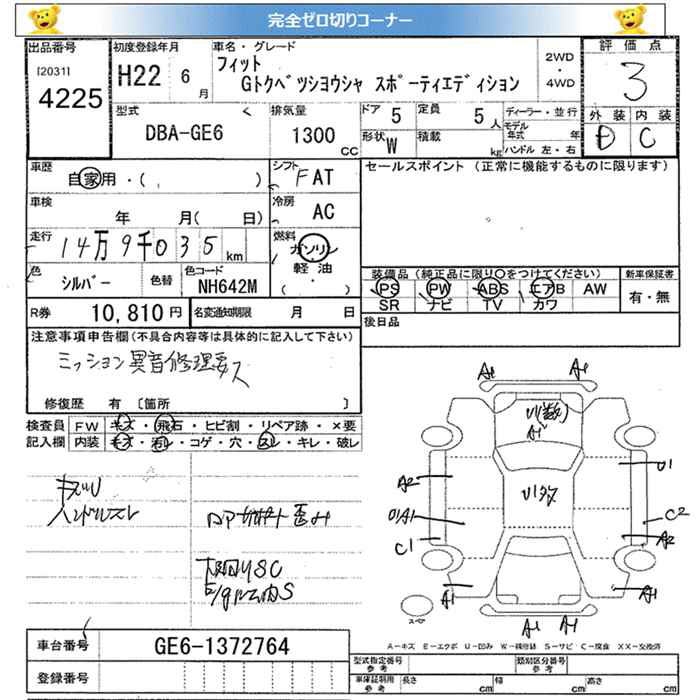 完全ゼロ切りコーナー
出品番号 [2031] 4225
初度登録年月 H22 6月
車名・グレード フィット
Gトクベツシヨウシャ スポーティエディション
2WD・4WD
評価点 3
外装 D 内装 C
型式 DBA-GE6
排気量 1300 CC
ドア 5 定員 5人
形状 W 積載 kg
ディーラー・並行
モデル年式 年
ハンドル 左・右
車歴 自家用・( )
シフト FAT
セールスポイント (正常に機能するものに限ります)
車検 年 月( 日)
冷房 AC
走行 14万9千035km
燃料 ガソリン 軽油 ( ・ )
色 シルバー 色替 色コード NH642M
装備品 (純正品に限り○をつけてください) 新車保証書
PS PW ABS エアB AW 有・無
SR ナビ TV カワ
R券 10,810円 名変通知期限 月 日
後日品
注意事項申告欄(不具合内容等は具体的に記入して下さい)
ミッション異音修理要ス
修復歴 有 〔箇所 〕
検査員 FW キズ・飛石・ヒビ割・リペア跡・×要
記入欄 内装 キズ・汚レ・コゲ・穴・スレ・キレ・破レ
A1 A1
U1
A2
U1
C2
A2
C1
A1 A1
A1 A1
キズU
ハンドルスレ
下回りSC
スペア
A-キズ E-エクボ U-凹み W-補修跡 S-サビ C-腐食 XX-交換済
車台番号 GE6-1372764
登録番号
型式指定番号 参考 類別区分番号 参考
車庫証明用 参考 長さ cm 幅 cm 高さ cm